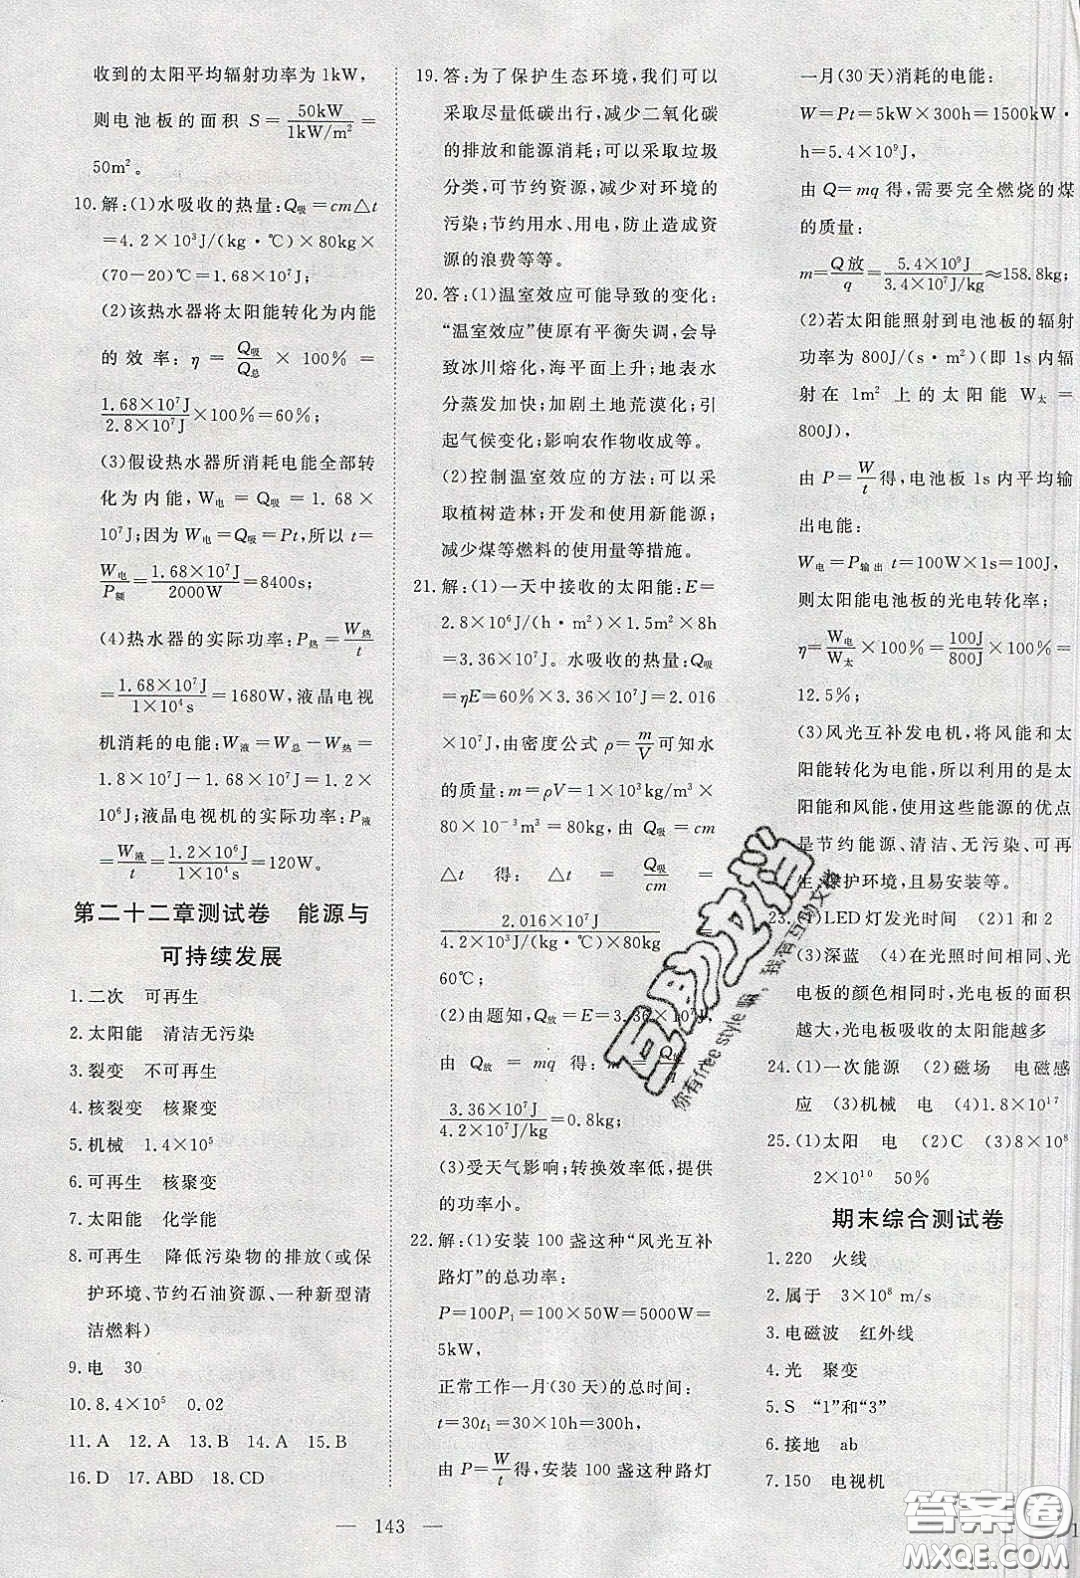 收到的太阳平均辐射功率为1kW,
则电池板的面积 S=50kW/1kW/m²=
50m²。
10.解:(1)水吸收的热量:Q吸=cm△t
=4.2×10³J/(kg·℃)×80kg×
(70-20)℃=1.68×10⁷J;
(2)该热水器将太阳能转化为内能
的效率:η=Q吸/Q总×100%=
1.68×10⁷J/2.8×10⁷J×100%=60%;
(3)假设热水器所消耗电能全部转
化为内能,W电=Q吸=1.68×
10⁷J;因为W电=Q吸=Pt,所以t=
W电/P额=1.68×10⁷J/2000W=8400s;
(4)热水器的实际功率:P热=W热/t
=1.68×10⁷J/1×10⁴s=1680W,液晶电视
机消耗的电能:W液=W总-W热=
1.8×10⁷J-1.68×10⁷J=1.2×
10⁶J;液晶电视机的实际功率:P液
=W液/t=1.2×10⁶J/1×10⁴s=120W。
第二十二章测试卷 能源与
可持续发展
1.二次 可再生
2.太阳能 清洁无污染
3.裂变 不可再生
4.核裂变 核聚变
5.机械 1.4×10⁵
6.可再生 核聚变
7.太阳能 化学能
8.可再生 降低污染物的排放(或保
护环境、节约石油资源、一种新型清
洁燃料)
9.电 30
10.8.4×10⁵ 0.02
11.A 12.A 13.B 14.A 15.B
16.D 17.ABD 18.CD
19.答:为了保护生态环境,我们可以
采取尽量低碳出行,减少二氧化碳
的排放和能源消耗;可以采取垃圾
分类,可节约资源,减少对环境的
污染;节约用水、用电,防止造成资
源的浪费等等。
20.答:(1)温室效应可能导致的变化:
“温室效应”使原有平衡失调,会导
致冰川熔化,海平面上升;地表水
分蒸发加快;加剧土地荒漠化;引
起气候变化;影响农作物收成等。
(2)控制温室效应的方法:可以采
取植树造林;开发和使用新能源;
减少煤等燃料的使用量等措施。
21.解:(1)一天中接收的太阳能:E=
2.8×10⁶J/(h·m²)×1.5m²×8h
=3.36×10⁷J。水吸收的热量:Q吸
=ηE=60%×3.36×10⁷J=2.016
×10⁷J,由密度公式ρ=m/V可知水
的质量:m=ρV=1×10³kg/m³×
80×10⁻³m³=80kg,由Q吸=cm
△t 得:△t=Q吸/cm=
2.016×10⁷J/4.2×10³J/(kg·℃)×80kg=
60℃;
(2)由题知,Q放=E=3.36×10⁷J,
由 Q放=mq 得:m=Q放/q=
3.36×10⁷J/4.2×10⁷J/kg=0.8kg;
(3)受天气影响;转换效率低,提供
的功率小。
22.解:(1)安装100盏这种“风光互补
路灯”的总功率:
P=100P₁=100×50W=5000W=
5kW,
正常工作一月(30天)的总时间:
t=30t₁=30×10h=300h,
由P=W/t得,安装100盏这种路灯
一月(30天)消耗的电能:
W=Pt=5kW×300h=1500kW
·h=5.4×10⁹J,
由Q=mq得,需要完全燃烧的煤
的质量:
m=Q放/q=5.4×10⁹J/3.4×10⁷J/kg≈158.8kg;
(2)若太阳能照射到电池板的辐射
功率为800J/(s·m²)(即1s内辐
射在1m²上的太阳能W太=
800J),
由P=W/t得,电池板1s内平均输
出电能:
W电=P输出t=100W×1s=100J,
则太阳能电池板的光电转化率;
η=W电/W太×100%=100J/800J×100%=
12.5%;
(3)风光互补发电机,将风能和太
阳能转化为电能,所以利用的是太
阳能和风能,使用这些能源的优点
是节约能源、清洁、无污染、可再
生、保护环境,且易安装等。
23.(1)LED灯发光时间 (2)1和2
(3)深蓝 (4)在光照时间相同、光
电板的颜色相同时,光电板的面积
越大,光电板吸收的太阳能越多
24.(1)一次能源 (2)磁场 电磁感
应 (3)机械 电 (4)1.8×10¹⁷
25.(1)太阳 电 (2)C (3)8×10⁸
2×10¹⁰ 50%
期末综合测试卷
1.220 火线
2.属于 3×10⁸ m/s
3.电磁波 红外线
4.光 聚变
5.S “1”和“3”
6.接地 ab
7.150 电视机
— 143 —
互助文档
你有free style嘛,我有互助文档
答案圈
MXQE.COM